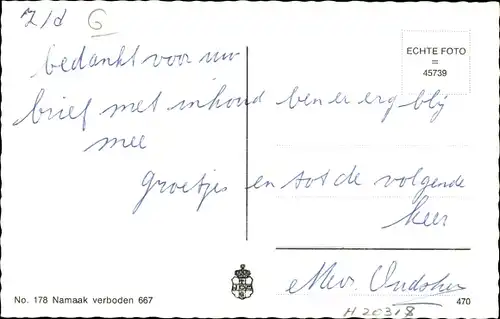 Z/d G
ECHTE FOTO
=
45739
bedankt voor uw
brief met inhoud ben er erg blij
mee
groetjes en tot de volgende
keer
Mevr. Oudsher
No. 178 Namaak verboden 667
470
H 20318